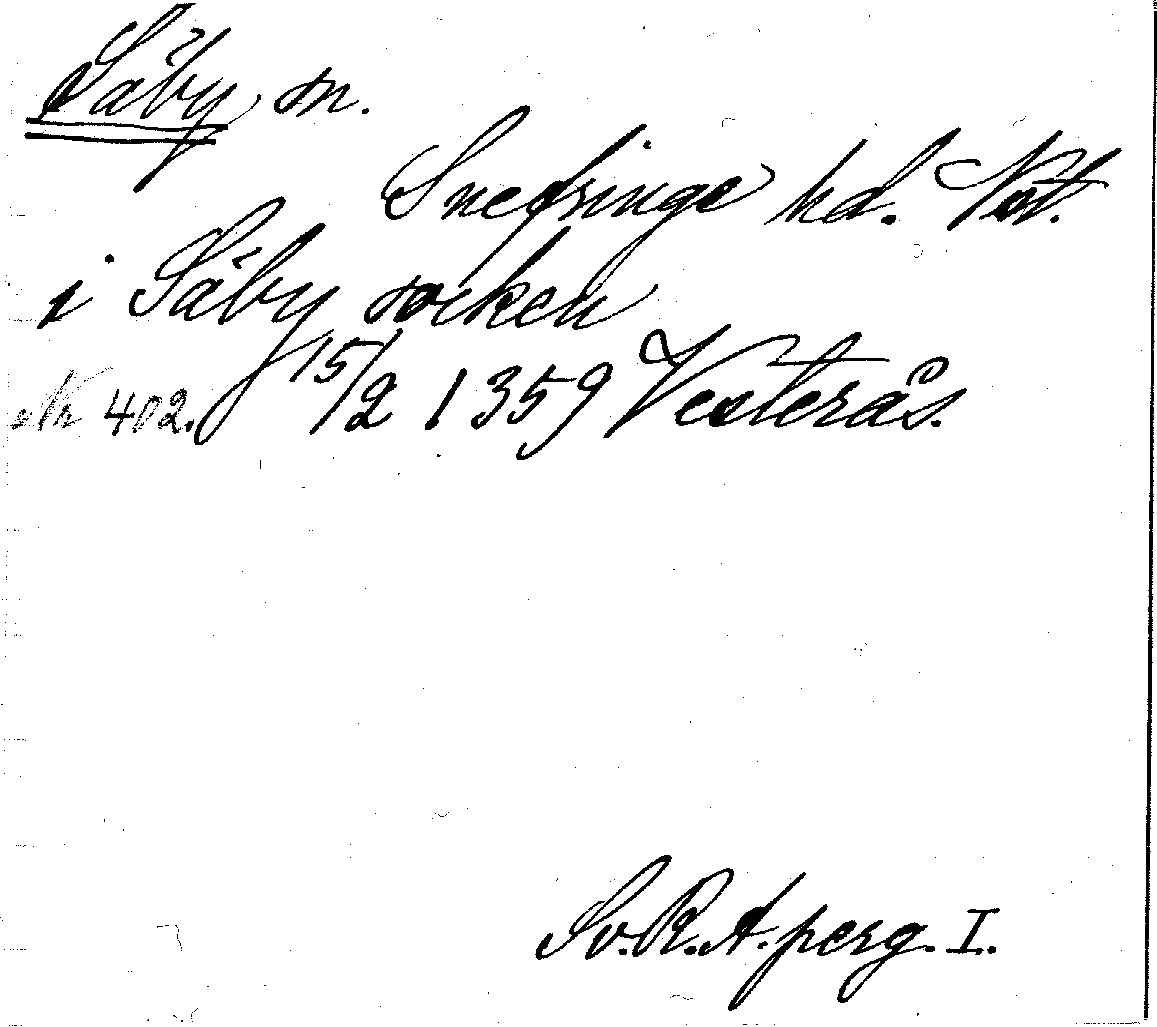 Säby sn.
Snefringe hd. Vst.
i Säby socken
Nr 402. 15/2 1359 Vesterås.
Sv. R. A. perg. I.